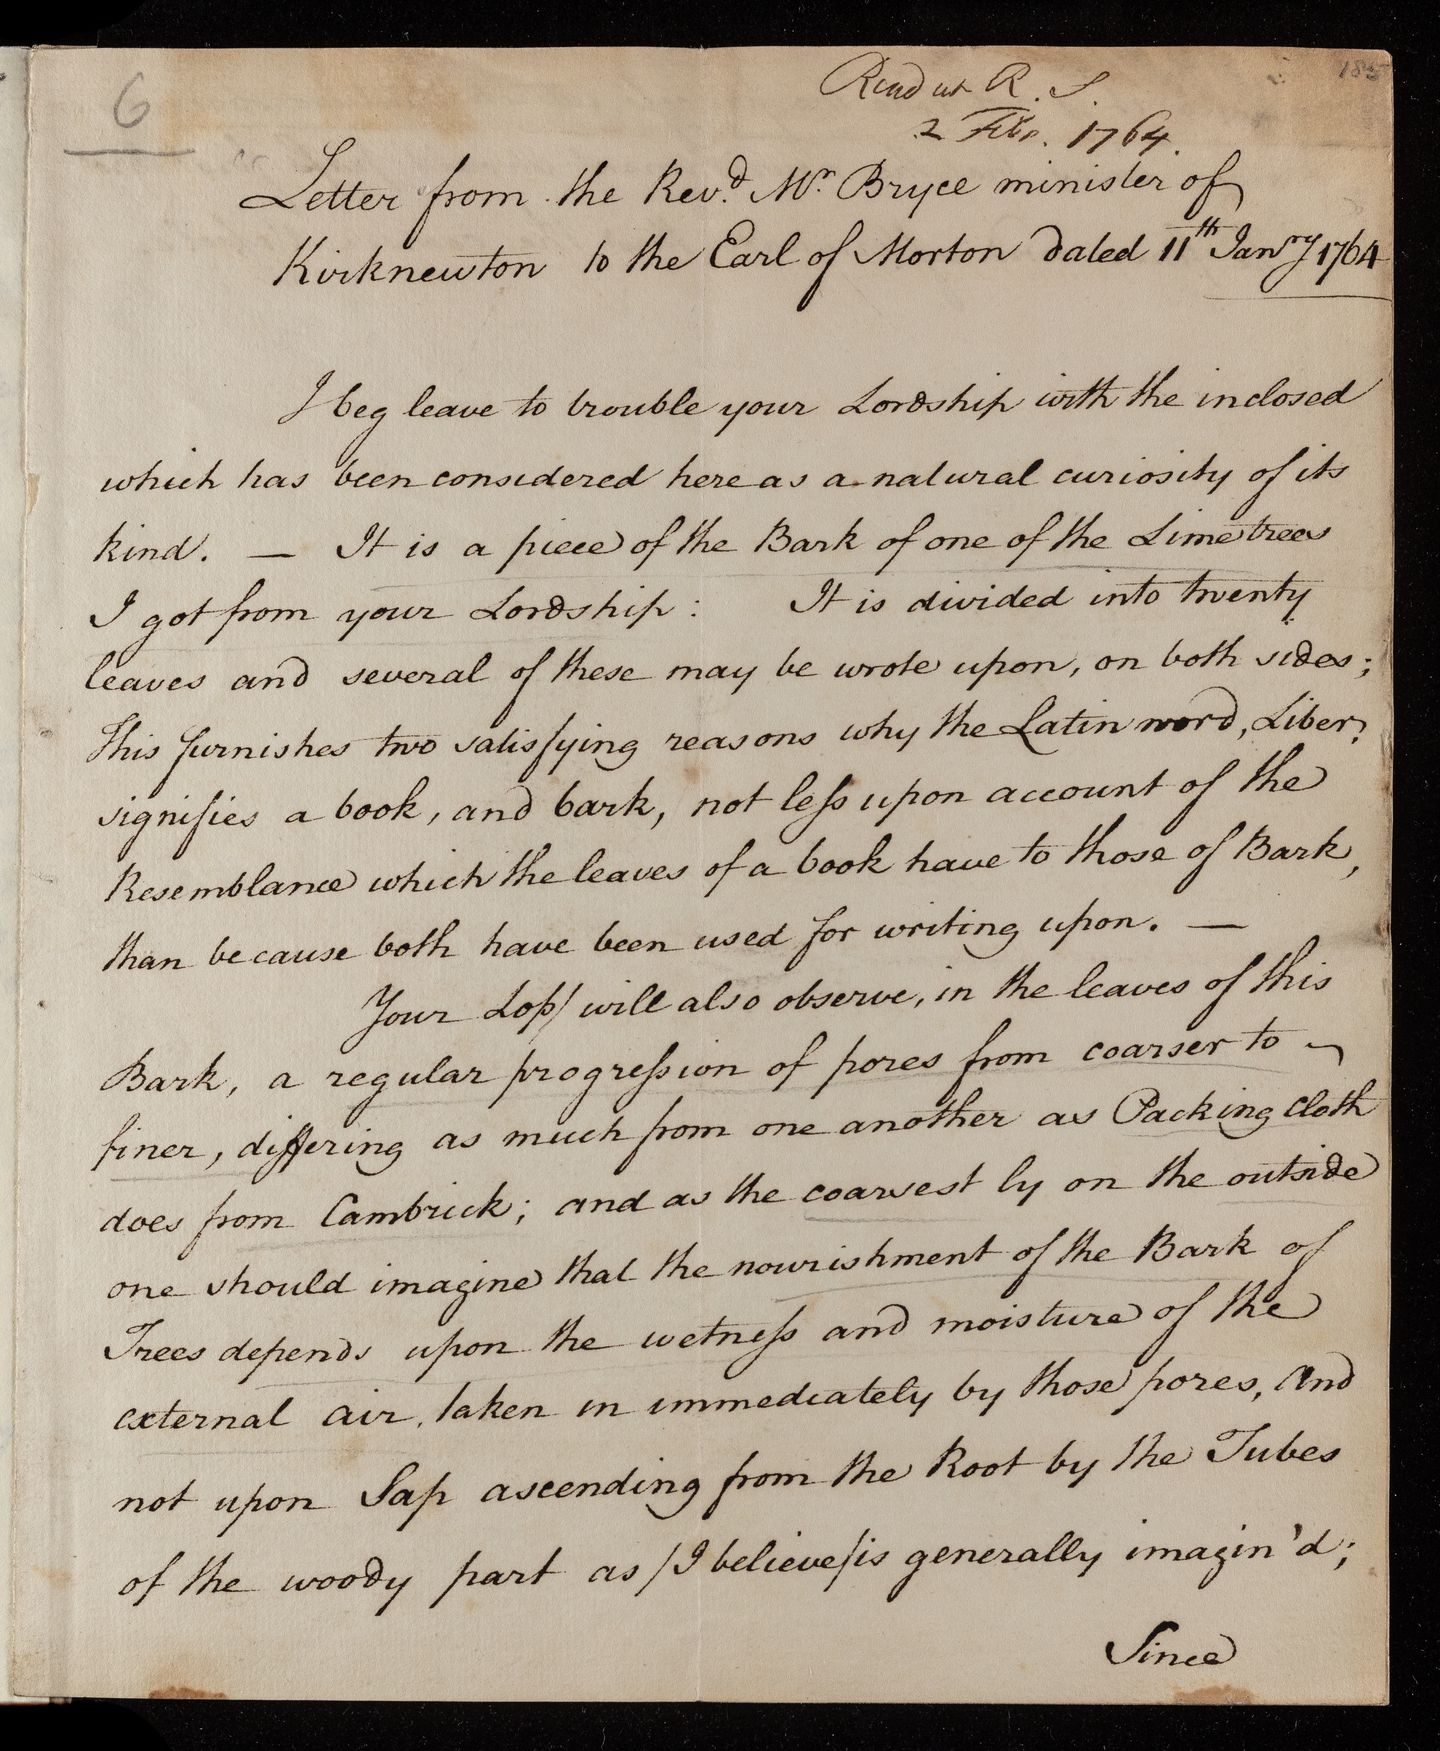 6
185
Read at R. S.
2 Feb. 1764.
Letter from the Rev.d Mr Bryce minister of
Kirknewton to the Earl of Morton dated 11th Janry 1764
I beg leave to trouble your Lordship with the inclosed
which has been considered here as a natural curiosity of its
kind. — It is a piece of the Bark of one of the Lime trees
I got from your Lordship: It is divided into twenty
leaves and several of these may be wrote upon, on both sides;
This furnishes two satisfying reasons why the Latin word, Liber,
signifies a book, and bark, not less upon account of the
Resemblance which the leaves of a book have to those of Bark,
than because both have been used for writing upon. —
Your Lop/ will also observe, in the leaves of this
Bark, a regular progression of pores from coarser to
finer, differing as much from one another as Packing cloth
does from Cambrick; and as the coarsest ly on the outside
one should imagine that the nourishment of the Bark of
Trees depends upon the wetness and moisture of the
external air, taken in immediately by those pores, and
not upon Sap ascending from the Root by the Tubes
of the woody part as /I believe/ is generally imagin'd;
Since